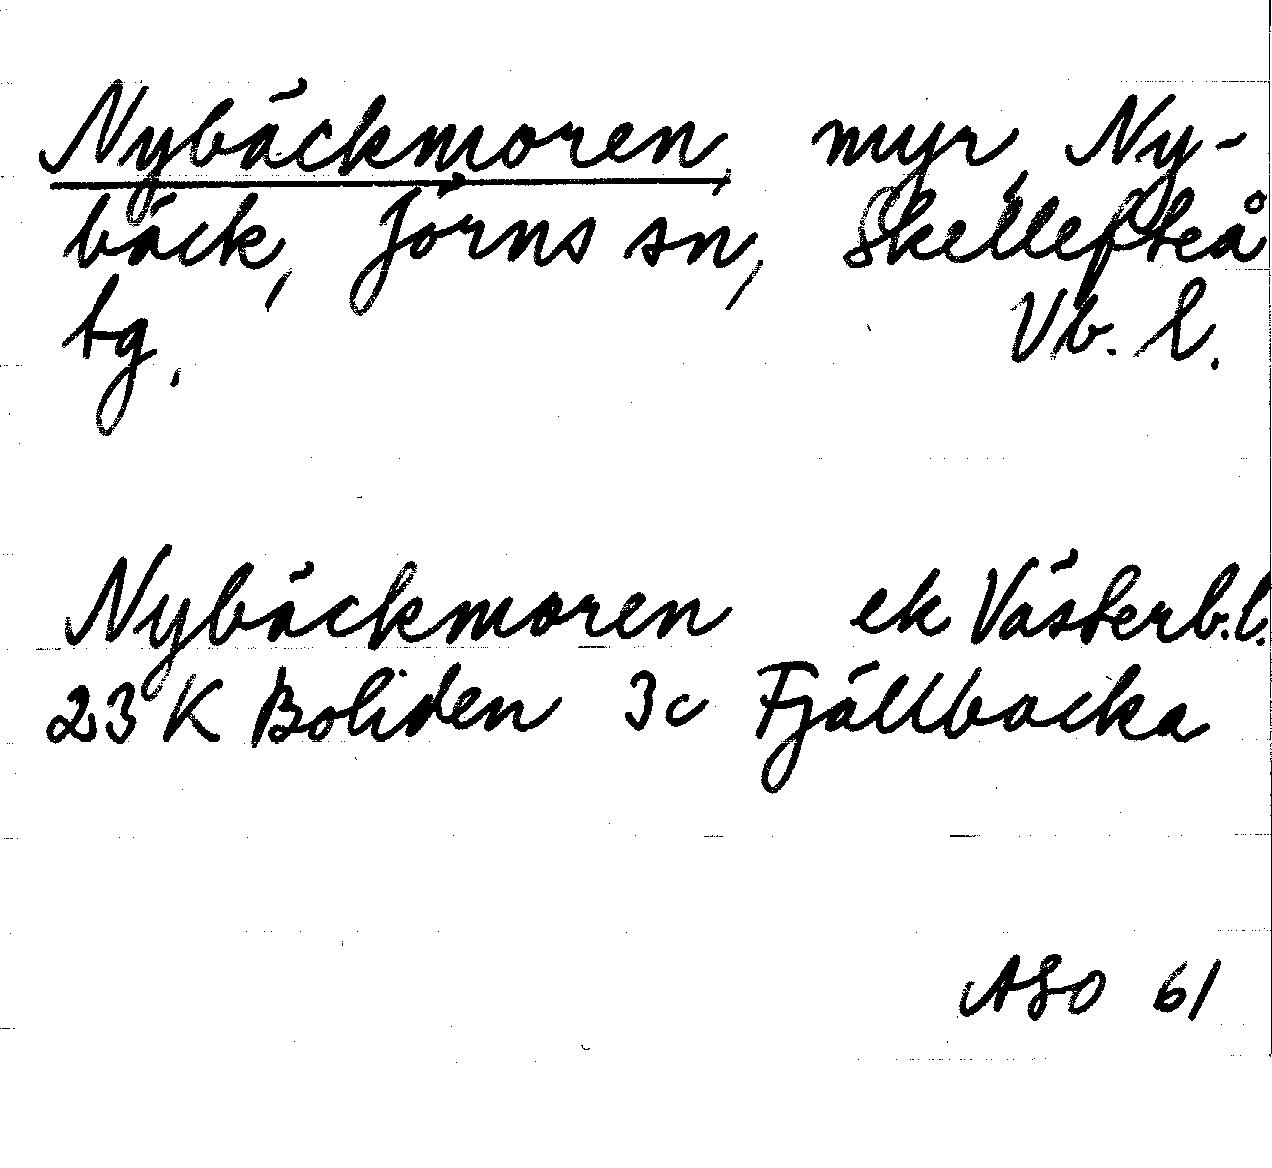 Nybäckmoren, myr, Ny-
bäck, Jörns sn, Skellefteå
tg. Vb. l.
Nybäckmoren ek Västerb.l.
23 K Boliden 3c Fjällbocka
ASO 61